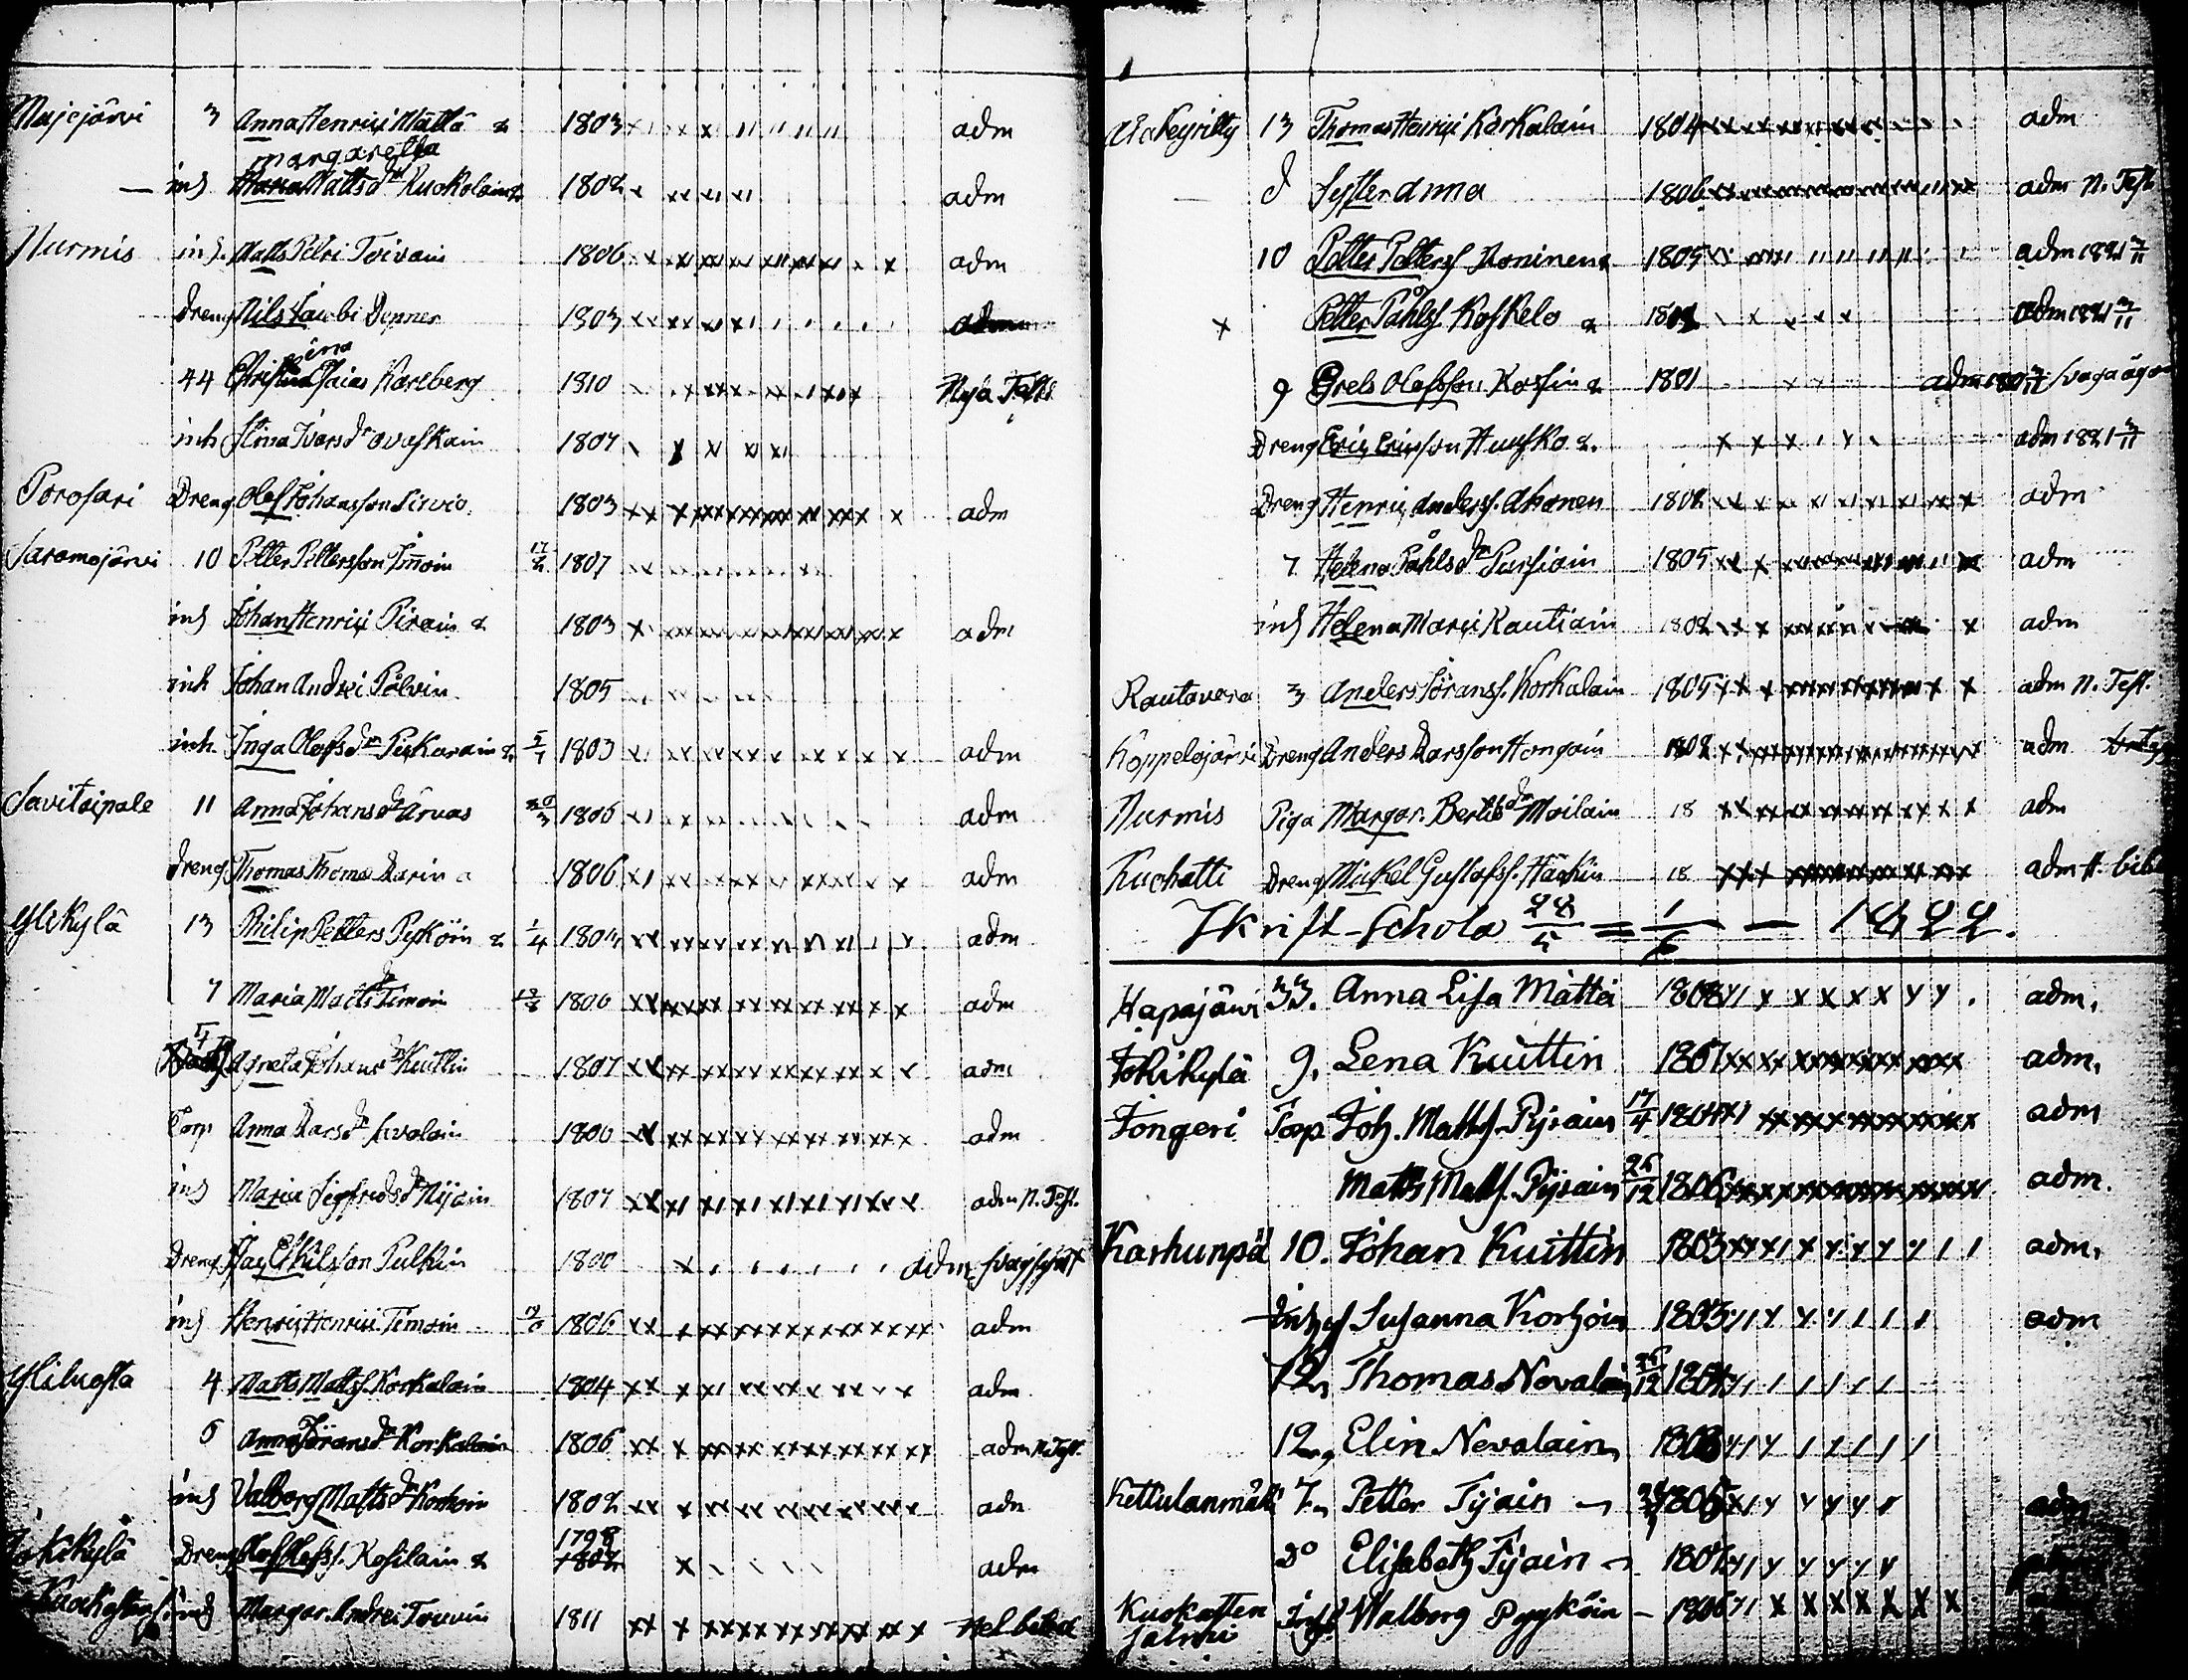 Majejärvi 3 Anna Henrici Mättä 1803 adm
margaretta
inh Matts dr Kuokolain 1802 adm
Nurmis inh. Matts Petri Toivain 1806 adm
Dreng Nils Jacobi Donner 1803 adm
ina
44 Christina Esaias Karlberg 1810 Nya Test
inh Stina Ivars dr Ovaskain 1807
Porosari Dreng Olof Johansson Sirviö 1803 adm
Saramojärvi 10 Petter Pettersson Timoin 17/2 1807
inh Johan Henrici Pirain 1803 adm
inh Johan Andrei Pålvin 1805
inh Inga Olofs dr Piskarain 5/7 1803 adm
Savitaipale 11 Anna Johans dr Ärvas 20/3 1806 adm
dreng Thomas Thoma Karin 1806 adm
Ylikylä 13 Philip Petters Pyköin 1/4 1804 adm
7 Maria Matts dr Timoin 1806 adm
Agneta Johans dr Kuittin 1807 adm
Torp Anna Lars dr Savolain 1800 adm
inh Maria Sigfreds dr Nijain 1807 adm N. Test.
Dreng Eskilsson Pulkin 1800 adm
inh Henric Henrici Timoin 1806 adm
Yliluosta 4 Matts Matts. Korkalain 1804 adm
6 Anna Görans dr Korkalain 1806 adm N. Test.
inh Valborg Matts dr Korhoin 1802 adm
1798
Jokikylä Dreng Olof Olofss. Kosilain 1802 adm
inh Margar. Andrei Touvin 1811 Hel bibel
13 Thomas Henrici Karkalain 1804 adm
d Syster Anna 1806 adm N. Test
10 Petter Petters. Roninen 1805 adm 1821 3/11
x Petter Påhls. Koskelo 1802 adm 1821 3/11
9 Grels Olofsson Kossin 1801 adm svaga ögon
Dreng Eric Ericsson Huusko adm 1821 3/11
Dreng Henric Anderss. Ahonen 1802 adm
7 Helena Påhls dr Pursiain 1805 adm
inh Helena Marci Rautiain 1802 adm
Rautavara 3 Anders Görans. Korkalain 1805 adm N. Test.
Koppelojärvi Dreng Anders Larsson Hongain 1802 adm
Nurmis Piga Margar. Bertils dr Moilain 18 adm
Kuohatti Dreng Mickel Gustafss. Härkin 18 adm H. bibel
Skrift-Schola 28/5 = 1/6 — 1822.
Hapajärvi 33. Anna Lisa Mättä 1808 adm.
Jokikylä 9. Lena Kuittin 1807 adm.
Jongeri Torp Joh. Matts. Pyrain 17/4 1804 adm
Matts Matts. Pyrain 26/12 1806 adm.
Karhunpä 10. Johan Kuittin 1803 adm.
Inhys Susanna Korhoin 1803 adm
12 Thomas Nevalain 26/12 1804
12 Elin Nevalain 1808
Kettulanmäki 7 Petter Tijain 1805 adm
Do Elisabeth Tijain 1807
Kuokatten Inh. Walborg Pyyköin 1806
jalmi